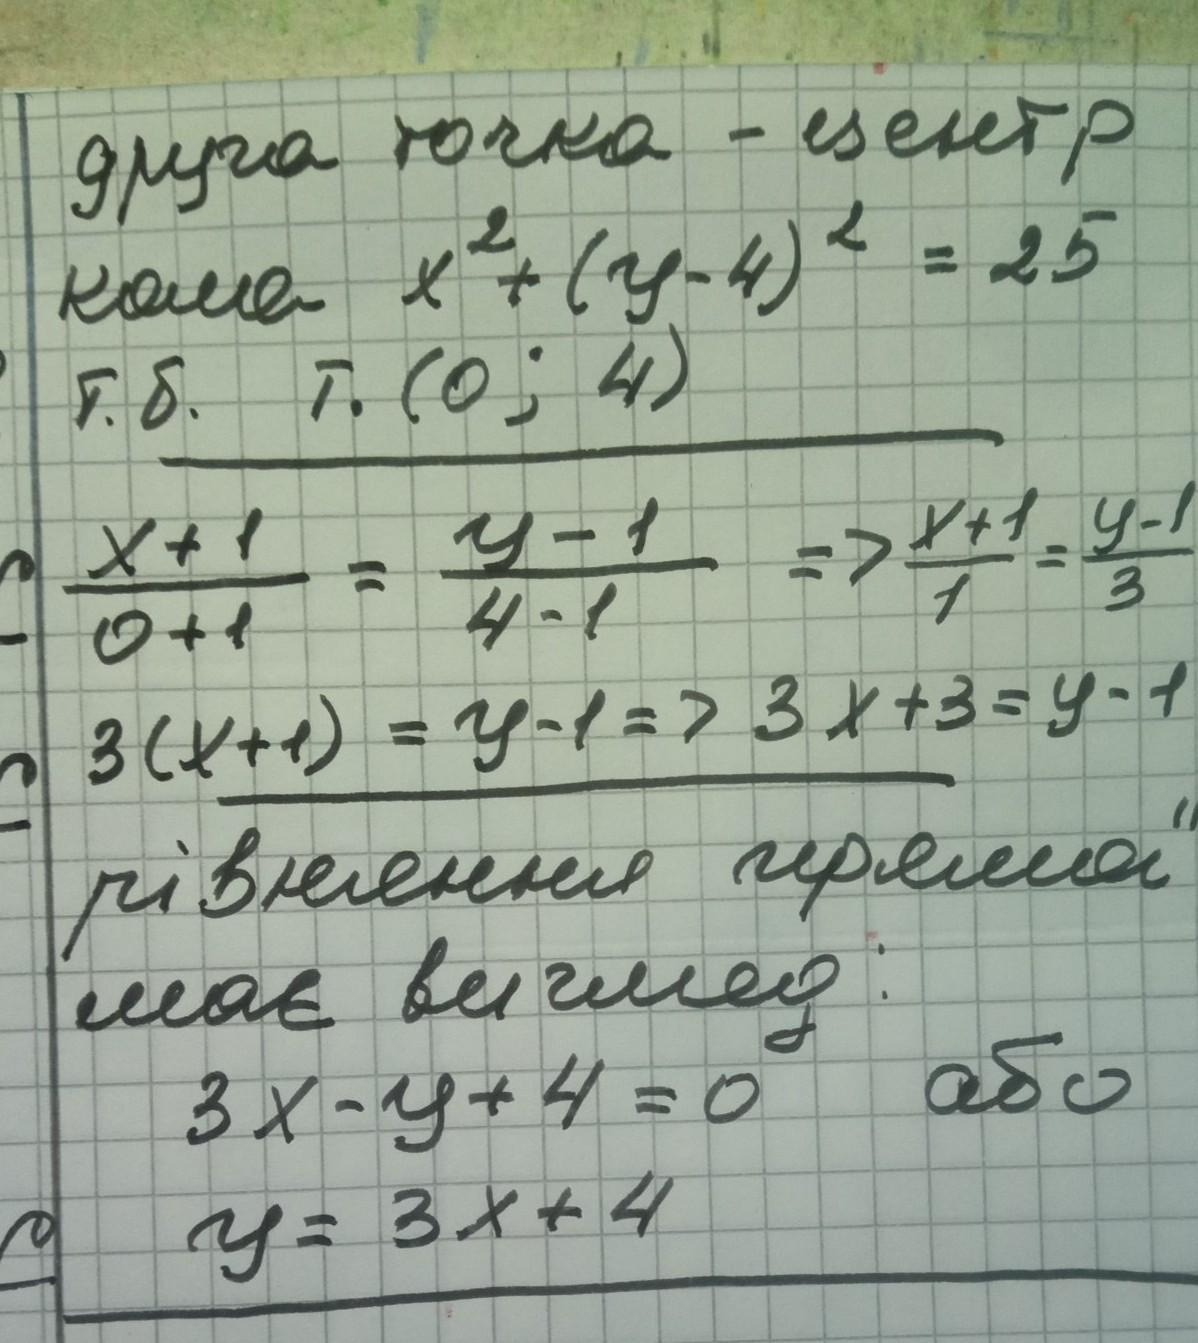 друга точка - центр
кола x² + (y - 4)² = 25
т.б. т. (0 ; 4)
x + 1 / 0 + 1 = y - 1 / 4 - 1 => x+1 / 1 = y-1 / 3
3(x+1) = y-1 => 3x+3 = y-1
рівняння прямої
має вигляд:
3x - y + 4 = 0 або
y = 3x + 4